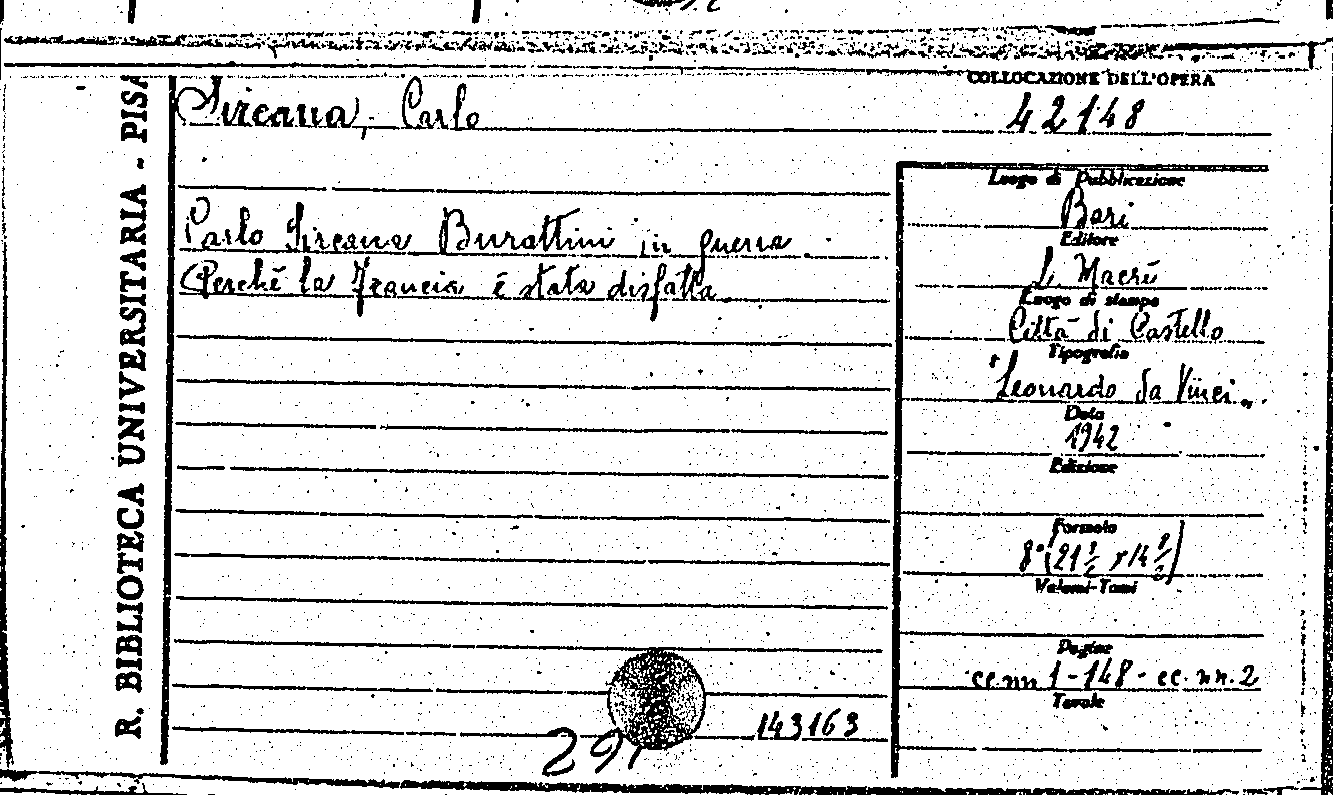 R. BIBLIOTECA UNIVERSITARIA - PISA
Sircana, Carlo
COLLOCAZIONE DELL'OPERA
42148
Carlo Sircana Burattini in guerra.
(Perché la Francia é stata disfatta.
Luogo di Pubblicazione
Bari
Editore
L. Macrì
Luogo di stampa
Città di Castello
Tipografia
"Leonardo da Vinci".
Data
1942
Edizione
Formato
8°
Volumi-Tomi
Pagine
cc.nn 1-148- cc. nn. 2
Tavole
143163